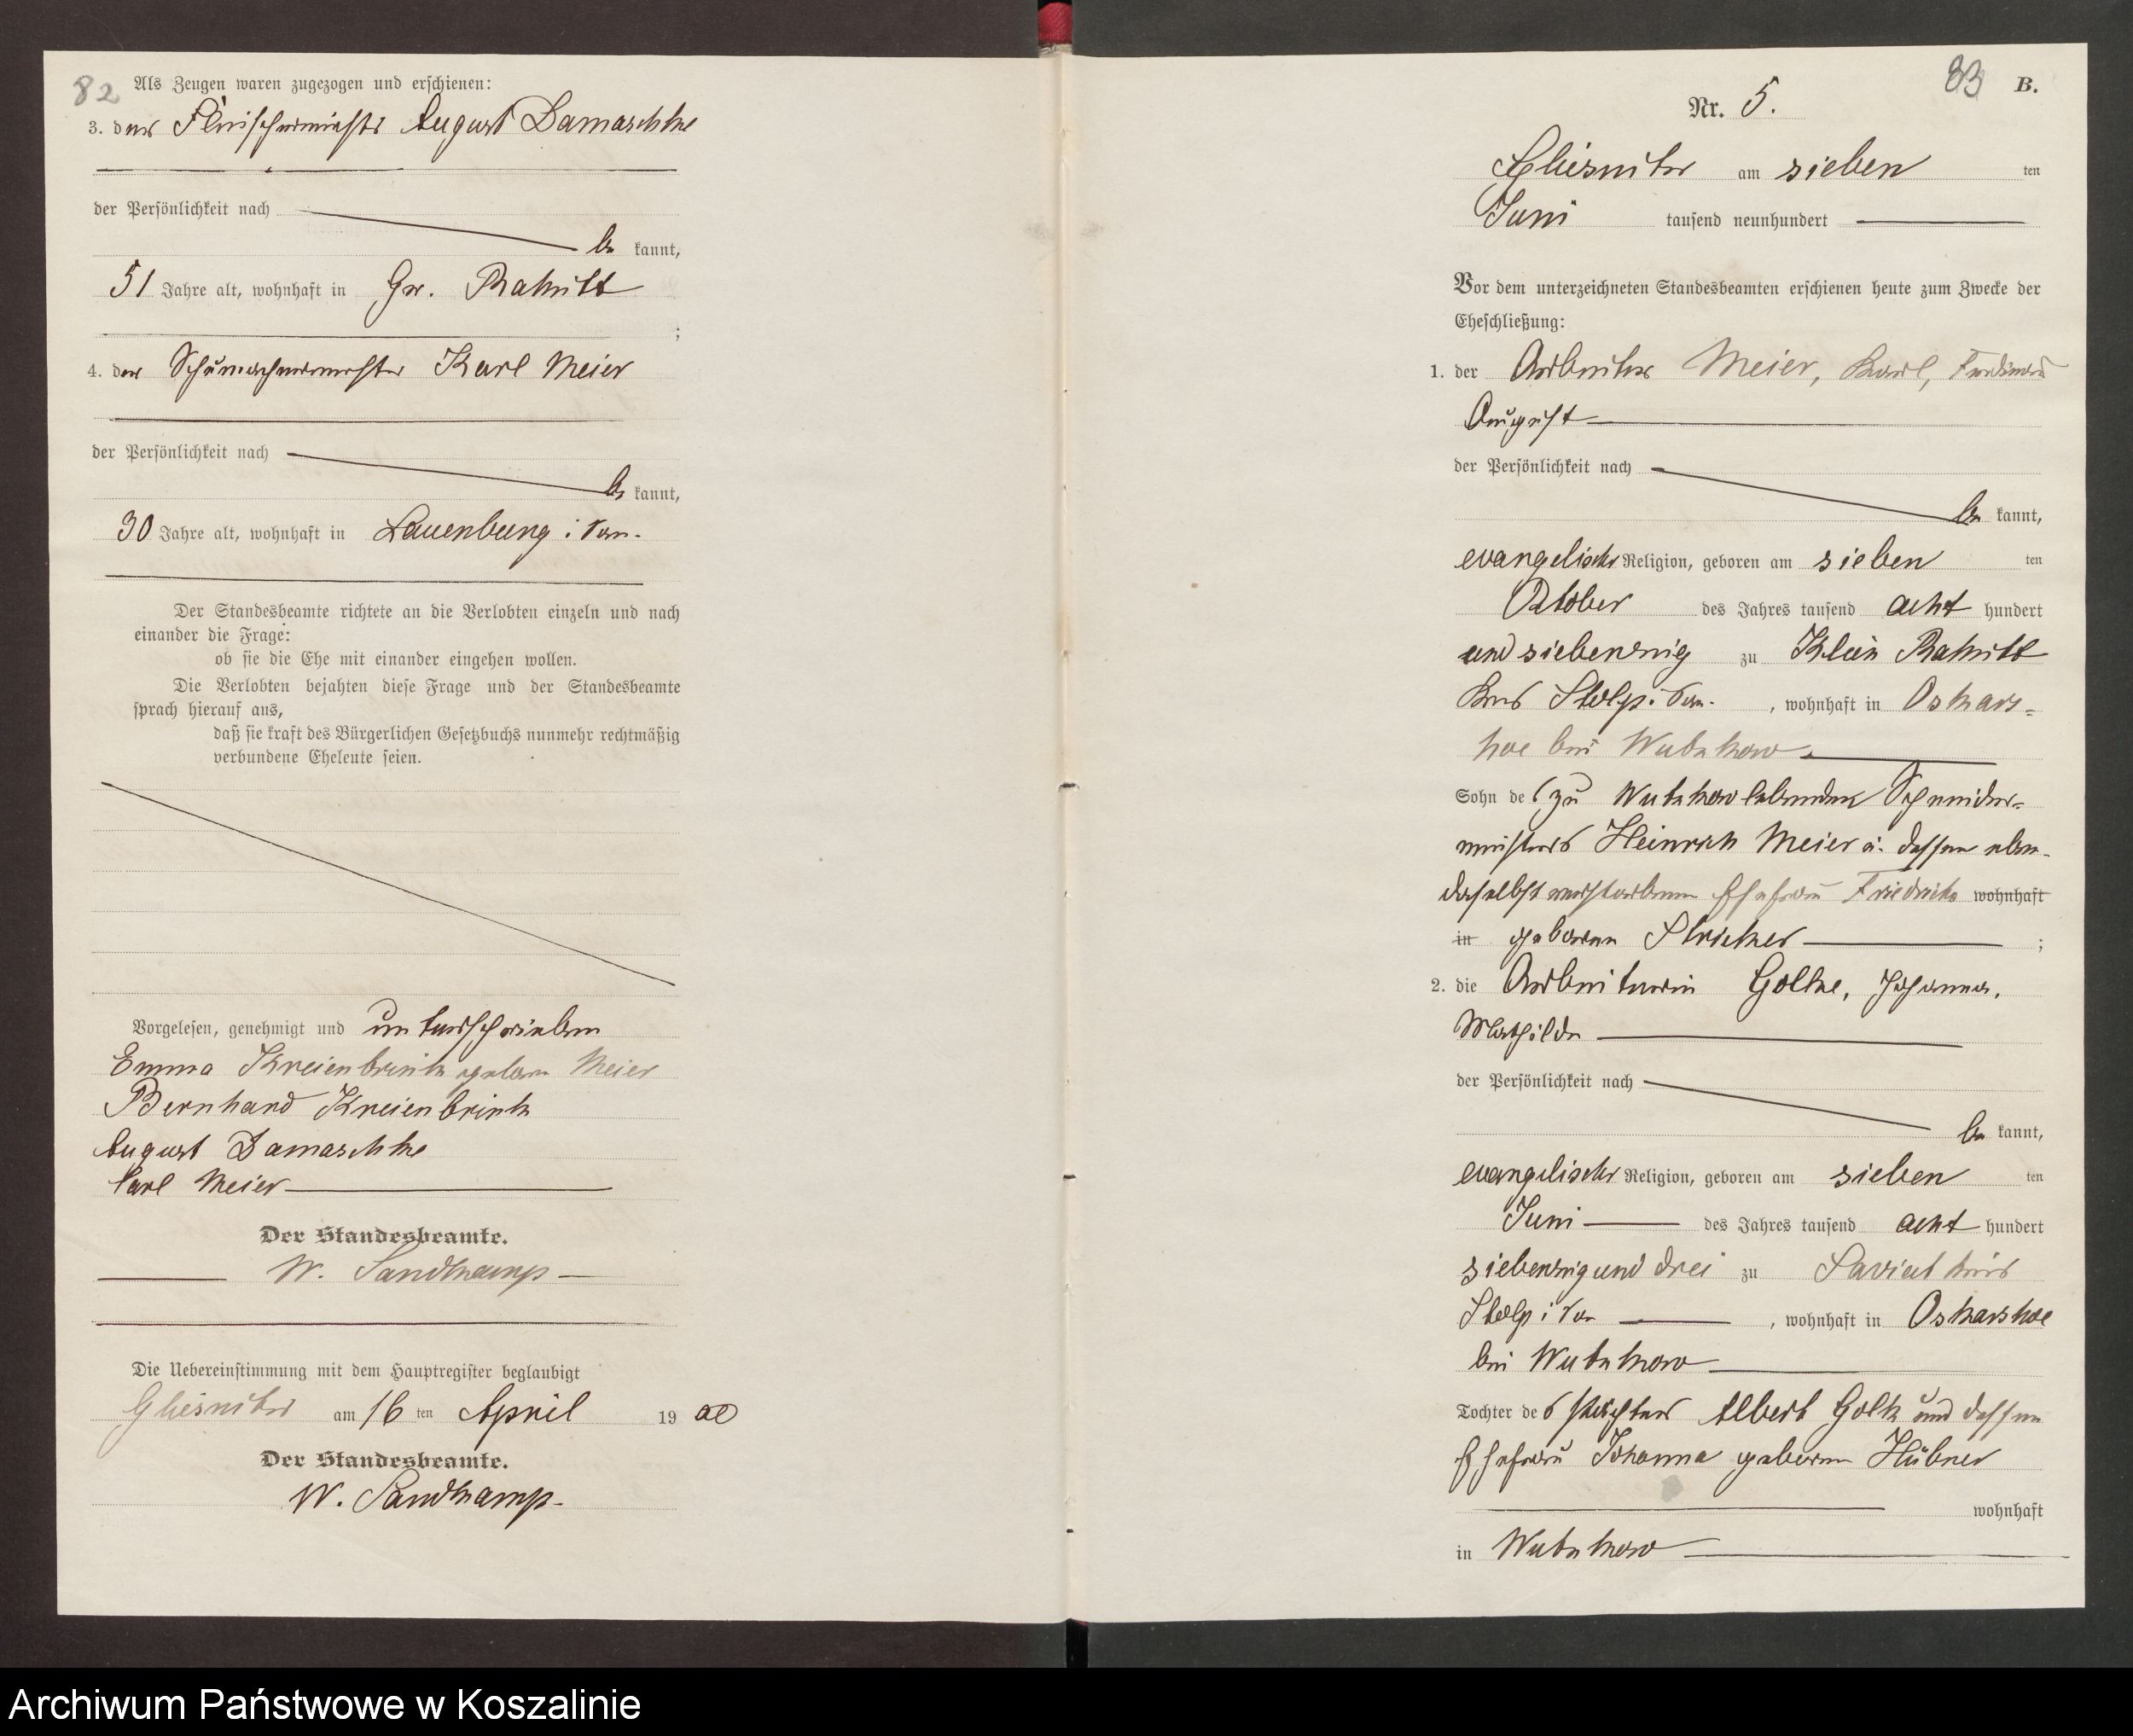 82
Als Zeugen waren zugezogen und erschienen:
3. der Fleischermeister August Damaschke
der Persönlichkeit nach
be kannt,
51 Jahre alt, wohnhaft in Gr. Rakitt
;
4. der Schumachermeister Karl Meier
der Persönlichkeit nach
be kannt,
30 Jahre alt, wohnhaft in Lauenburg i. Pom.
Der Standesbeamte richtete an die Verlobten einzeln und nach
einander die Frage:
ob sie die Ehe mit einander eingehen wollen.
Die Verlobten bejahten diese Frage und der Standesbeamte
sprach hierauf aus,
daß sie kraft des Bürgerlichen Gesetzbuchs nunmehr rechtmäßig
verbundene Eheleute seien.
Vorgelesen, genehmigt und unterschrieben
Emma Kreienbrink geborn Meier
Bernhard Kreienbrink
August Damaschke
Carl Meier
Der Standesbeamte.
W. Sandkamp
Die Uebereinstimmung mit dem Hauptregister beglaubigt
Gliesnitz am 16 ten April 19 00
Der Standesbeamte.
W. Sandkamp
83 B.
Nr. 5.
Gliesnitz am sieben ten
Juni tausend neunhundert
Vor dem unterzeichneten Standesbeamten erschienen heute zum Zwecke der
Eheschließung:
1. der Arbeiter Meier, Karl, Ferdinand
August
der Persönlichkeit nach
be kannt,
evangelischer Religion, geboren am sieben ten
Oktober des Jahres tausend acht hundert
und siebenzig zu Klein Rakitt
Kreis Stolp i. Pom. , wohnhaft in Oskars-
hoe bei Wutzkow
Sohn des zu Wutzkow lebenden Schneider-
meisters Heinrich Meier u. dessen eben-
daselbst verstorbenen Ehefrau Friedrike wohnhaft
in geborene Stricker ;
2. die Arbeiterin Golke, Johanna,
Mathilde
der Persönlichkeit nach
be kannt,
evangelischer Religion, geboren am sieben ten
Juni des Jahres tausend acht hundert
siebenzig und drei zu Saviat Kreis
Stolp i Pom , wohnhaft in Oskarshoe
bei Wutzkow
Tochter des Albert Golk und dessen
Ehefrau Johanna geboren Hübner
wohnhaft
in Wutzkow
Archiwum Państwowe w Koszalinie